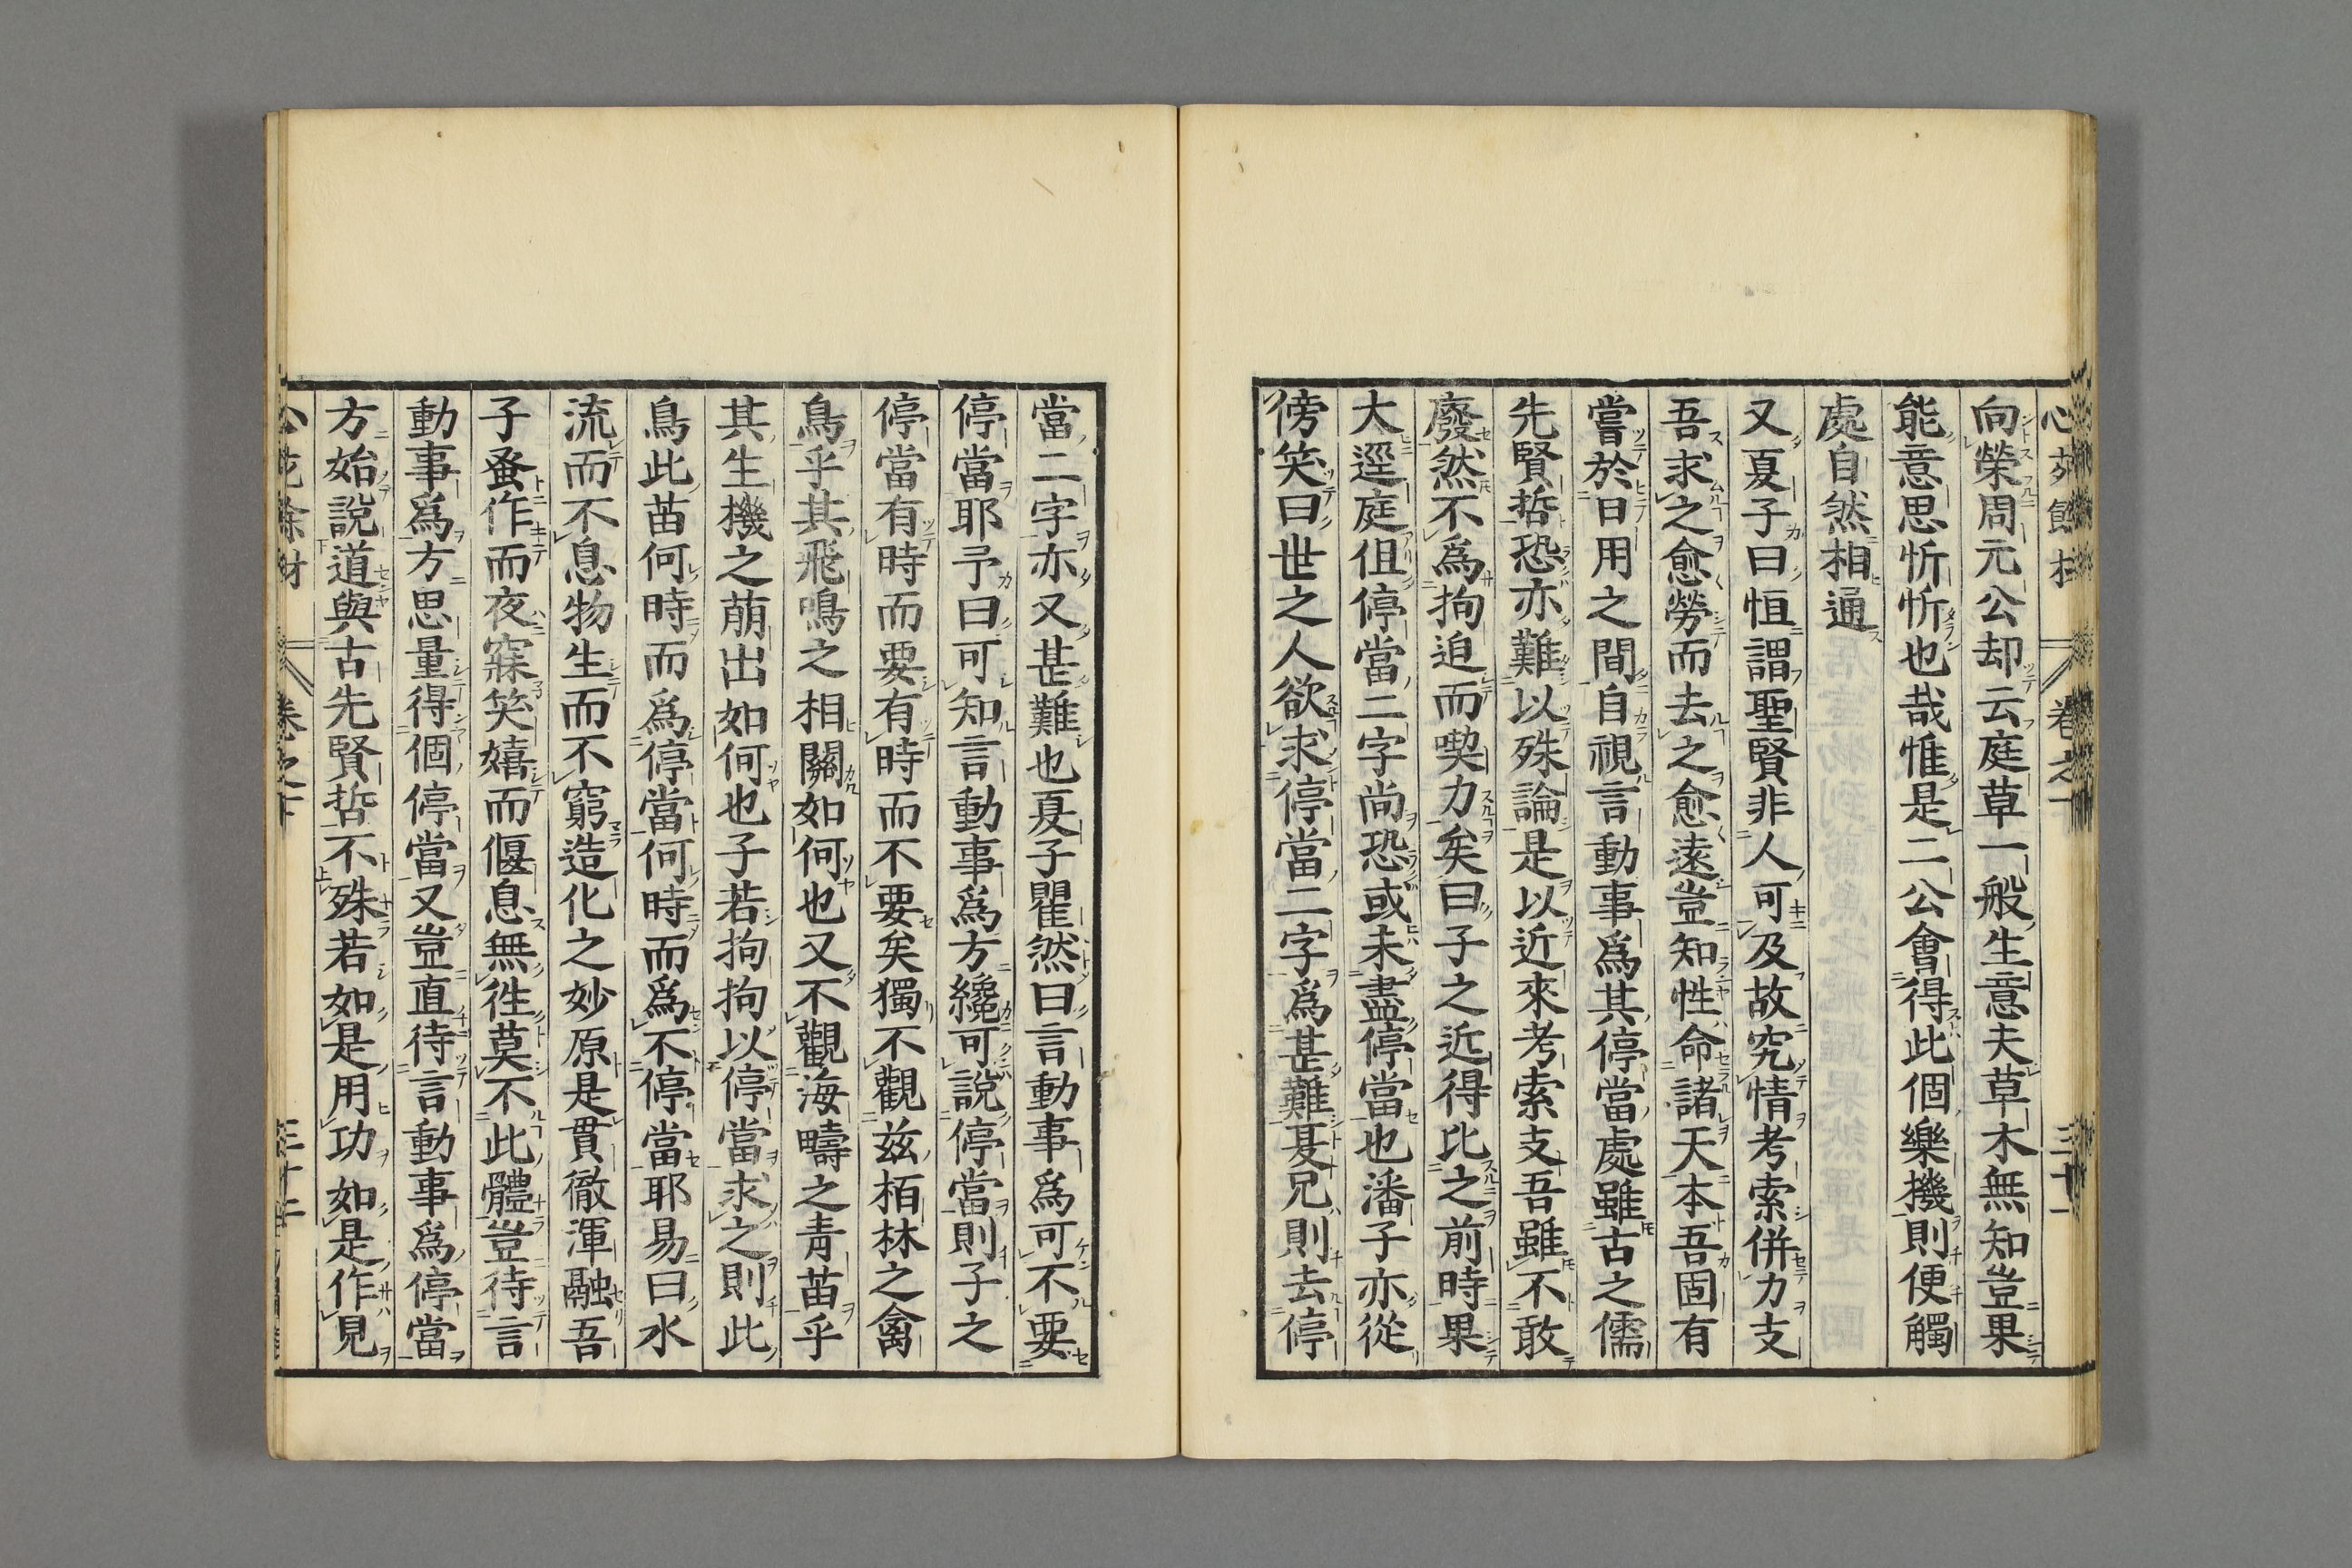 向榮周元公却云庭草一般生意夫草木無知豈果
能意思忻忻也哉惟是二公會得此個樂機則便觸
處自然相通
又夏子曰恒謂聖賢非人可及故究情考索併力支
吾求之愈勞而去之愈遠豈知性命諸天本吾固有
嘗於日用之間自視言動事爲其停當處雖古之儒
先賢哲恐亦難以殊論是以近來考索支吾雖不敢
廢然不爲拘迫而喫力矣曰子之近得比之前時果
大逕庭但停當二字尚恐或未盡停當也潘子亦從
傍笑曰世之人欲求停當二字爲甚難夏兄則去停
當二字亦又甚難也夏子瞿然曰言動事爲可不要
停當耶予曰可知言動事爲方纔可說停當則子之
停當有時而要有時而不要矣獨不觀玆栢林之禽
鳥乎其飛鳴之相關如何也又不觀海疇之青苗乎
其生機之萠出如何也子若拘拘以停當求之則此
鳥此苗何時而爲停當何時而爲不停當耶易曰水
流而不息物生而不窮造化之妙原是貫徹渾融吾
子蚤作而夜寐笑嬉而偃息無徃莫不此體豈待言
動事爲方思量得個停當又豈直待言動事爲停當
方始說道與古先賢哲不殊若如是用功如是作見